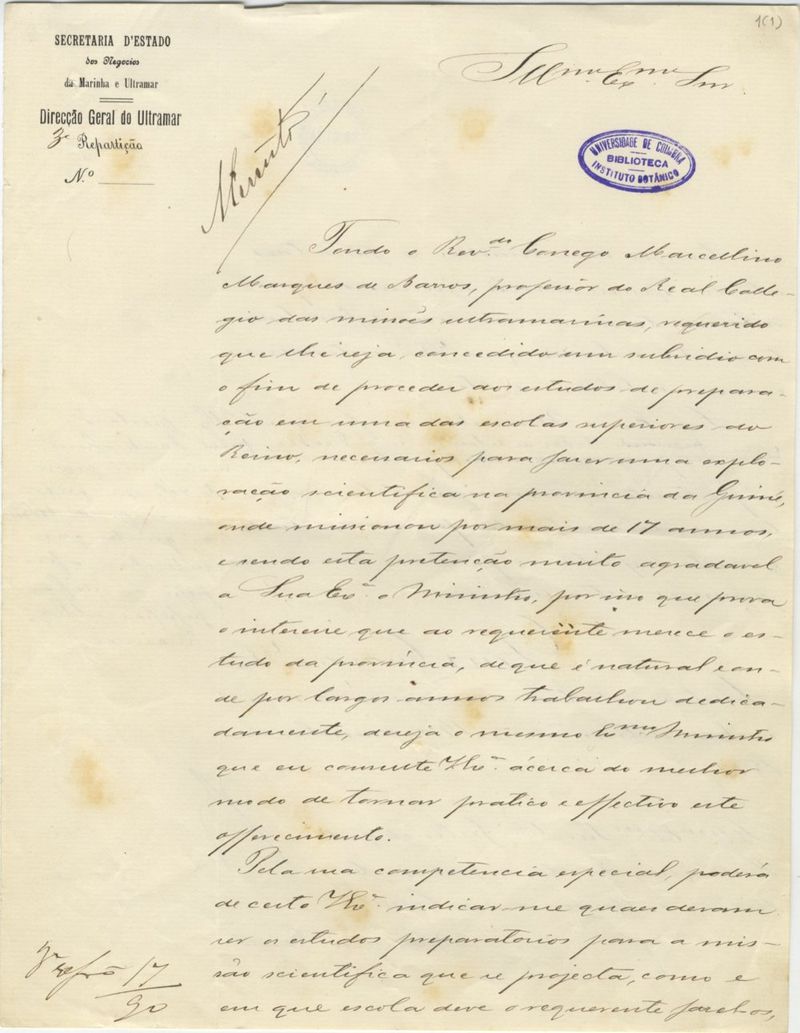 1(1)
SECRETARIA D'ESTADO
dos Negocios
da Marinha e Ultramar
Direcção Geral do Ultramar
3ª Repartição
N.º
Illmo. Exmo. Snr.
UNIVERSIDADE DE COIMBRA
BIBLIOTECA
INSTITUTO BOTÂNICO
Tendo o Rev.do Conego Marcellino
Marques de Barros, professor do Real Colle-
gio das missões ultramarinas, requerido
que lhe seja concedido um subsidio com
o fim de proceder aos estudos de prepara-
ção em uma das escolas superiores do
Reino, necessarios para fazer uma explo-
ração scientifica na provincia da Guiné,
onde missionou por mais de 17 annos,
e sendo esta pretenção muito agradavel
a Sua Ex.ª o Ministro, por isso que prova
o interesse que ao requerente merece o es-
tudo da provincia, de que é natural e on-
de por largos annos trabalhou dedica-
damente, deseja o mesmo Exmo. Ministro
que eu consulte V. Ex.ª ácerca do melhor
modo de tornar pratico e effectivo este
offerecimento.
Pela sua competencia especial, poderá
de certo V. Ex.ª indicar-me quaes deveram
ser os estudos preparatorios para a mis-
são scientifica que se projecta, como e
em que escola deve o requerente fazel-os,
17
90